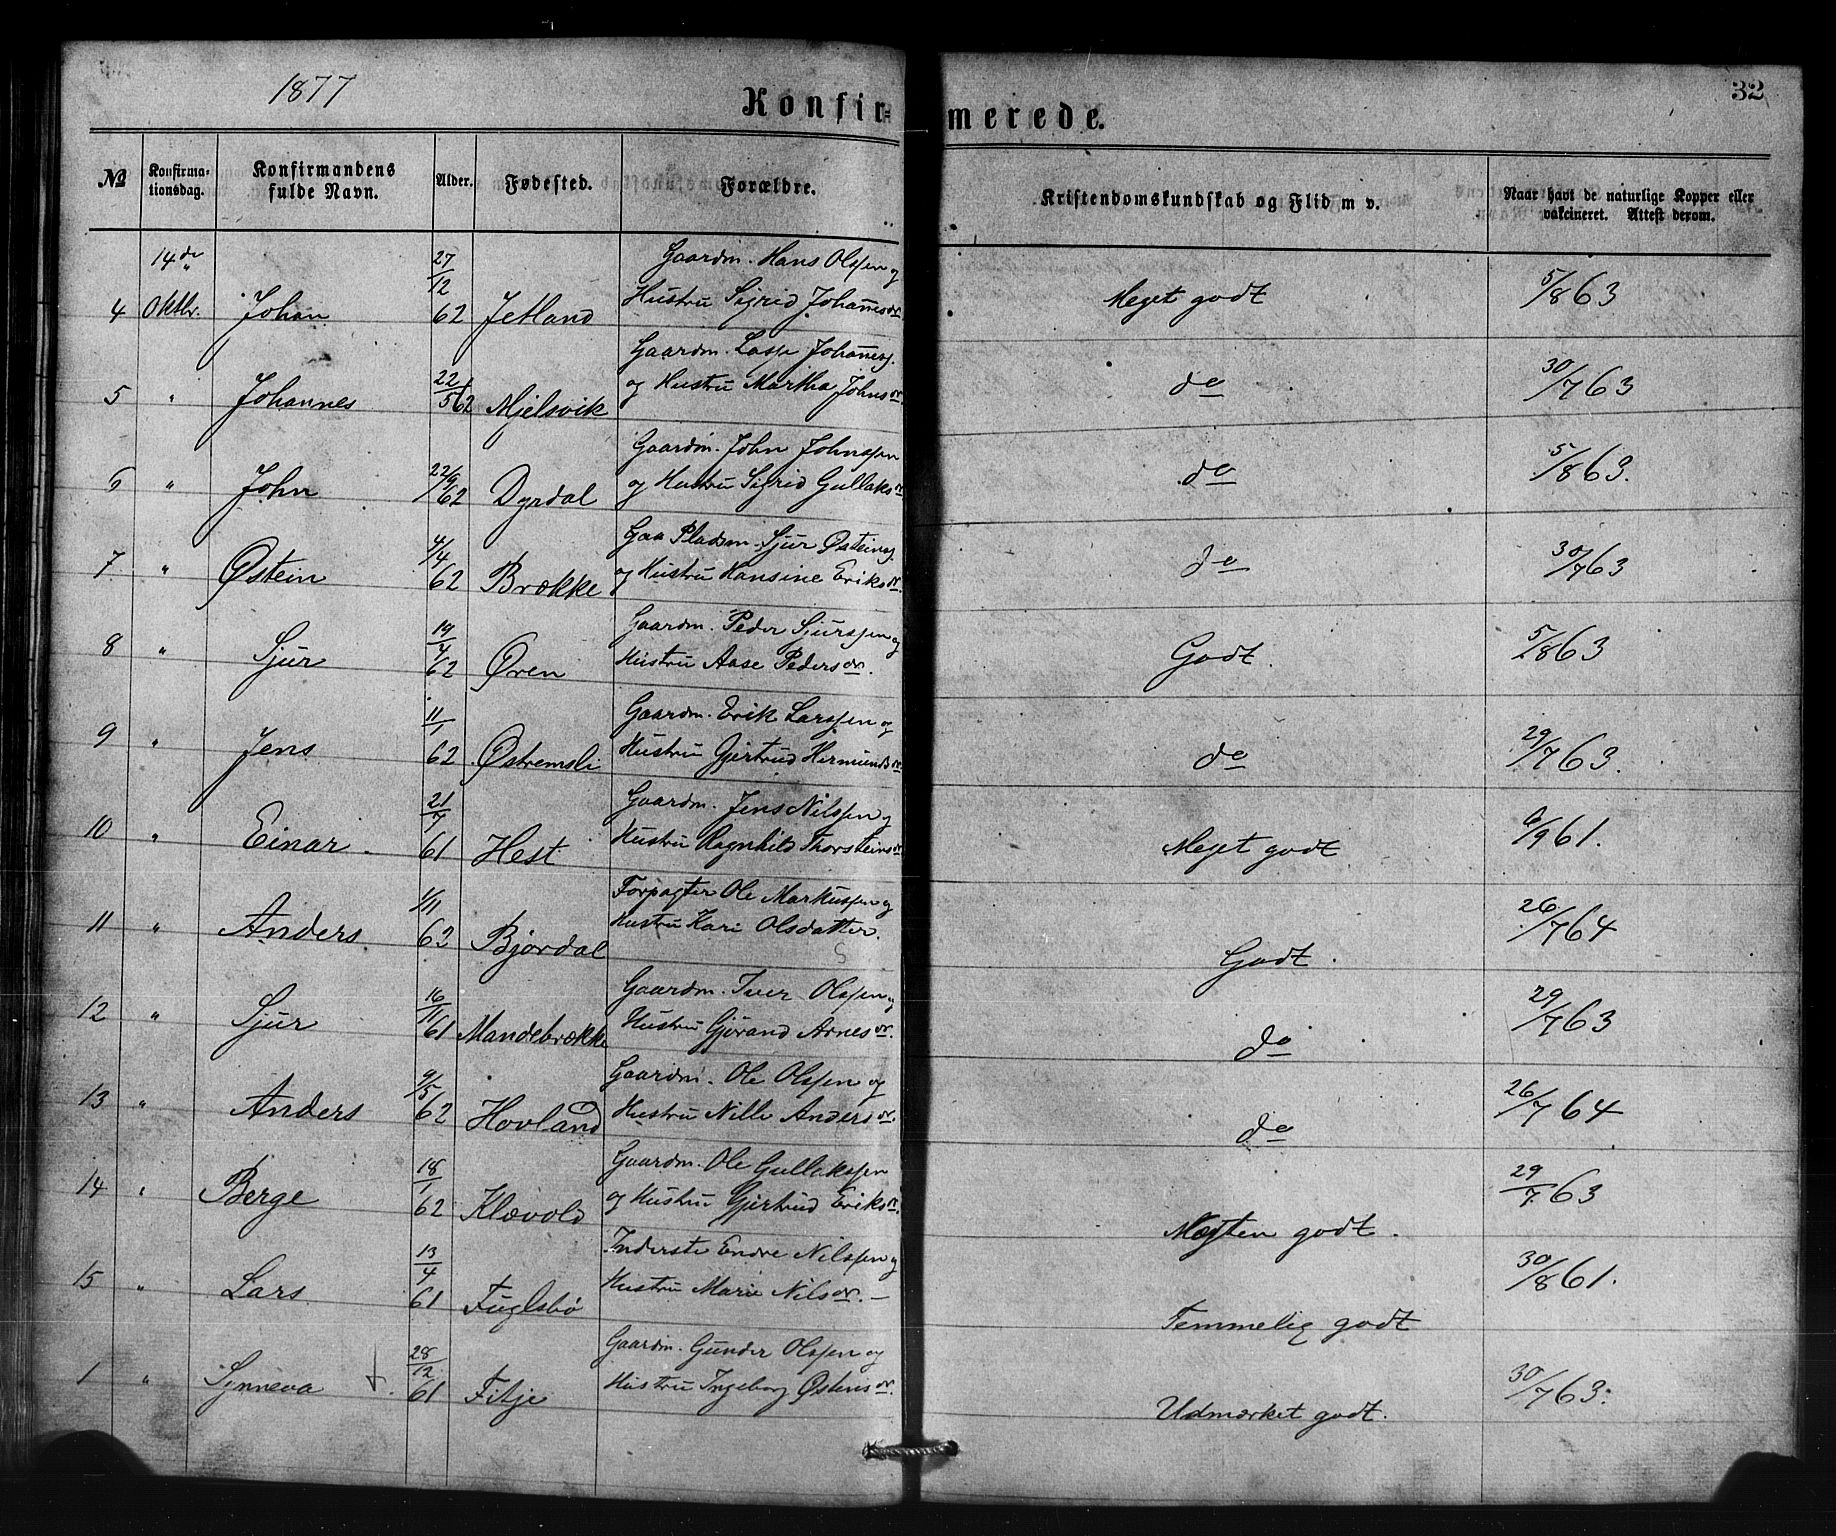 1877
32
Konfir=
merede.
No
Konfirma-
tionsdag.
Konfirmandens
fulde Navn.
Alder.
Fødested.
Forældre.
Kristendomskundskab og Flid m v.
Naar havt de naturlige Kopper eller
vakcineret. Attest derom.
14de 27/12 Gaardm. Hans Olssen og
4 Oktbr. Johan 62 Jetland Hustru Sigrid Johannesdr. Meget godt 5/8 63
Gaardm. Lasse Johanness.
5 " Johannes 22/5 62 Mjelsvik og Hustru Martha Johnsdr. do 30/7 63
Gaardm. John Johnssen
6 " John 22/9 62 Dyrdal og Hustru Sigrid Gullaksdr. do 5/8 63.
4/4 Pladsm. Sjur Østeins.
7 " Østein 62 Brække og Hustru Hansine Eriksdr. do 30/7 63
19/4 Gaardm. Peder Sjurssen og
8 " Sjur 62 Øren Hustru Aase Pedersdr. Godt. 5/8 63
11/1 Gaardm. Erik Larssen og
9 " Jens 62 Østremsli Hustru Gjertrud Hermundsdr. do 29/7 63.
21/7 Gaardm. Jens Nilssen og
10 " Einar. 61 Hest Hustru Ragnhild Thorsteinsdr. Meget godt 6/9 61.
1/11 Forpagter Ole Markussen og
11 " Anders. 62 Bjordal Hustru Kari Olsdatter. Godt. 26/7 64
16/11 Gaardm. Iver Olssen og
12 " Sjur 61 Mandebrække Hustru Gjørand Arnesdr. do 29/7 63
9/5 Gaardm. Ole Olssen og
13 " Anders 62 Hovland Hustru Nille Andersdr. do 26/7 64
18/1 Gaardm. Ole Gullakssen
14 " Berge 62 Klævold og Hustru Gjertrud Eriksdr. Megten godt. 29/7 63
13/4 Inderste Endre Nilssen og
15 " Lars 61 Fuglsbø Hustru Marie Nilsdr. – Temmelig godt 30/8 61.
28/12 Gaardm. Gunder Olssen og
1 " Synneva +. 61 Fitje Hustru Ingeborg Østensdr. Udmærket godt. 30/7 63.